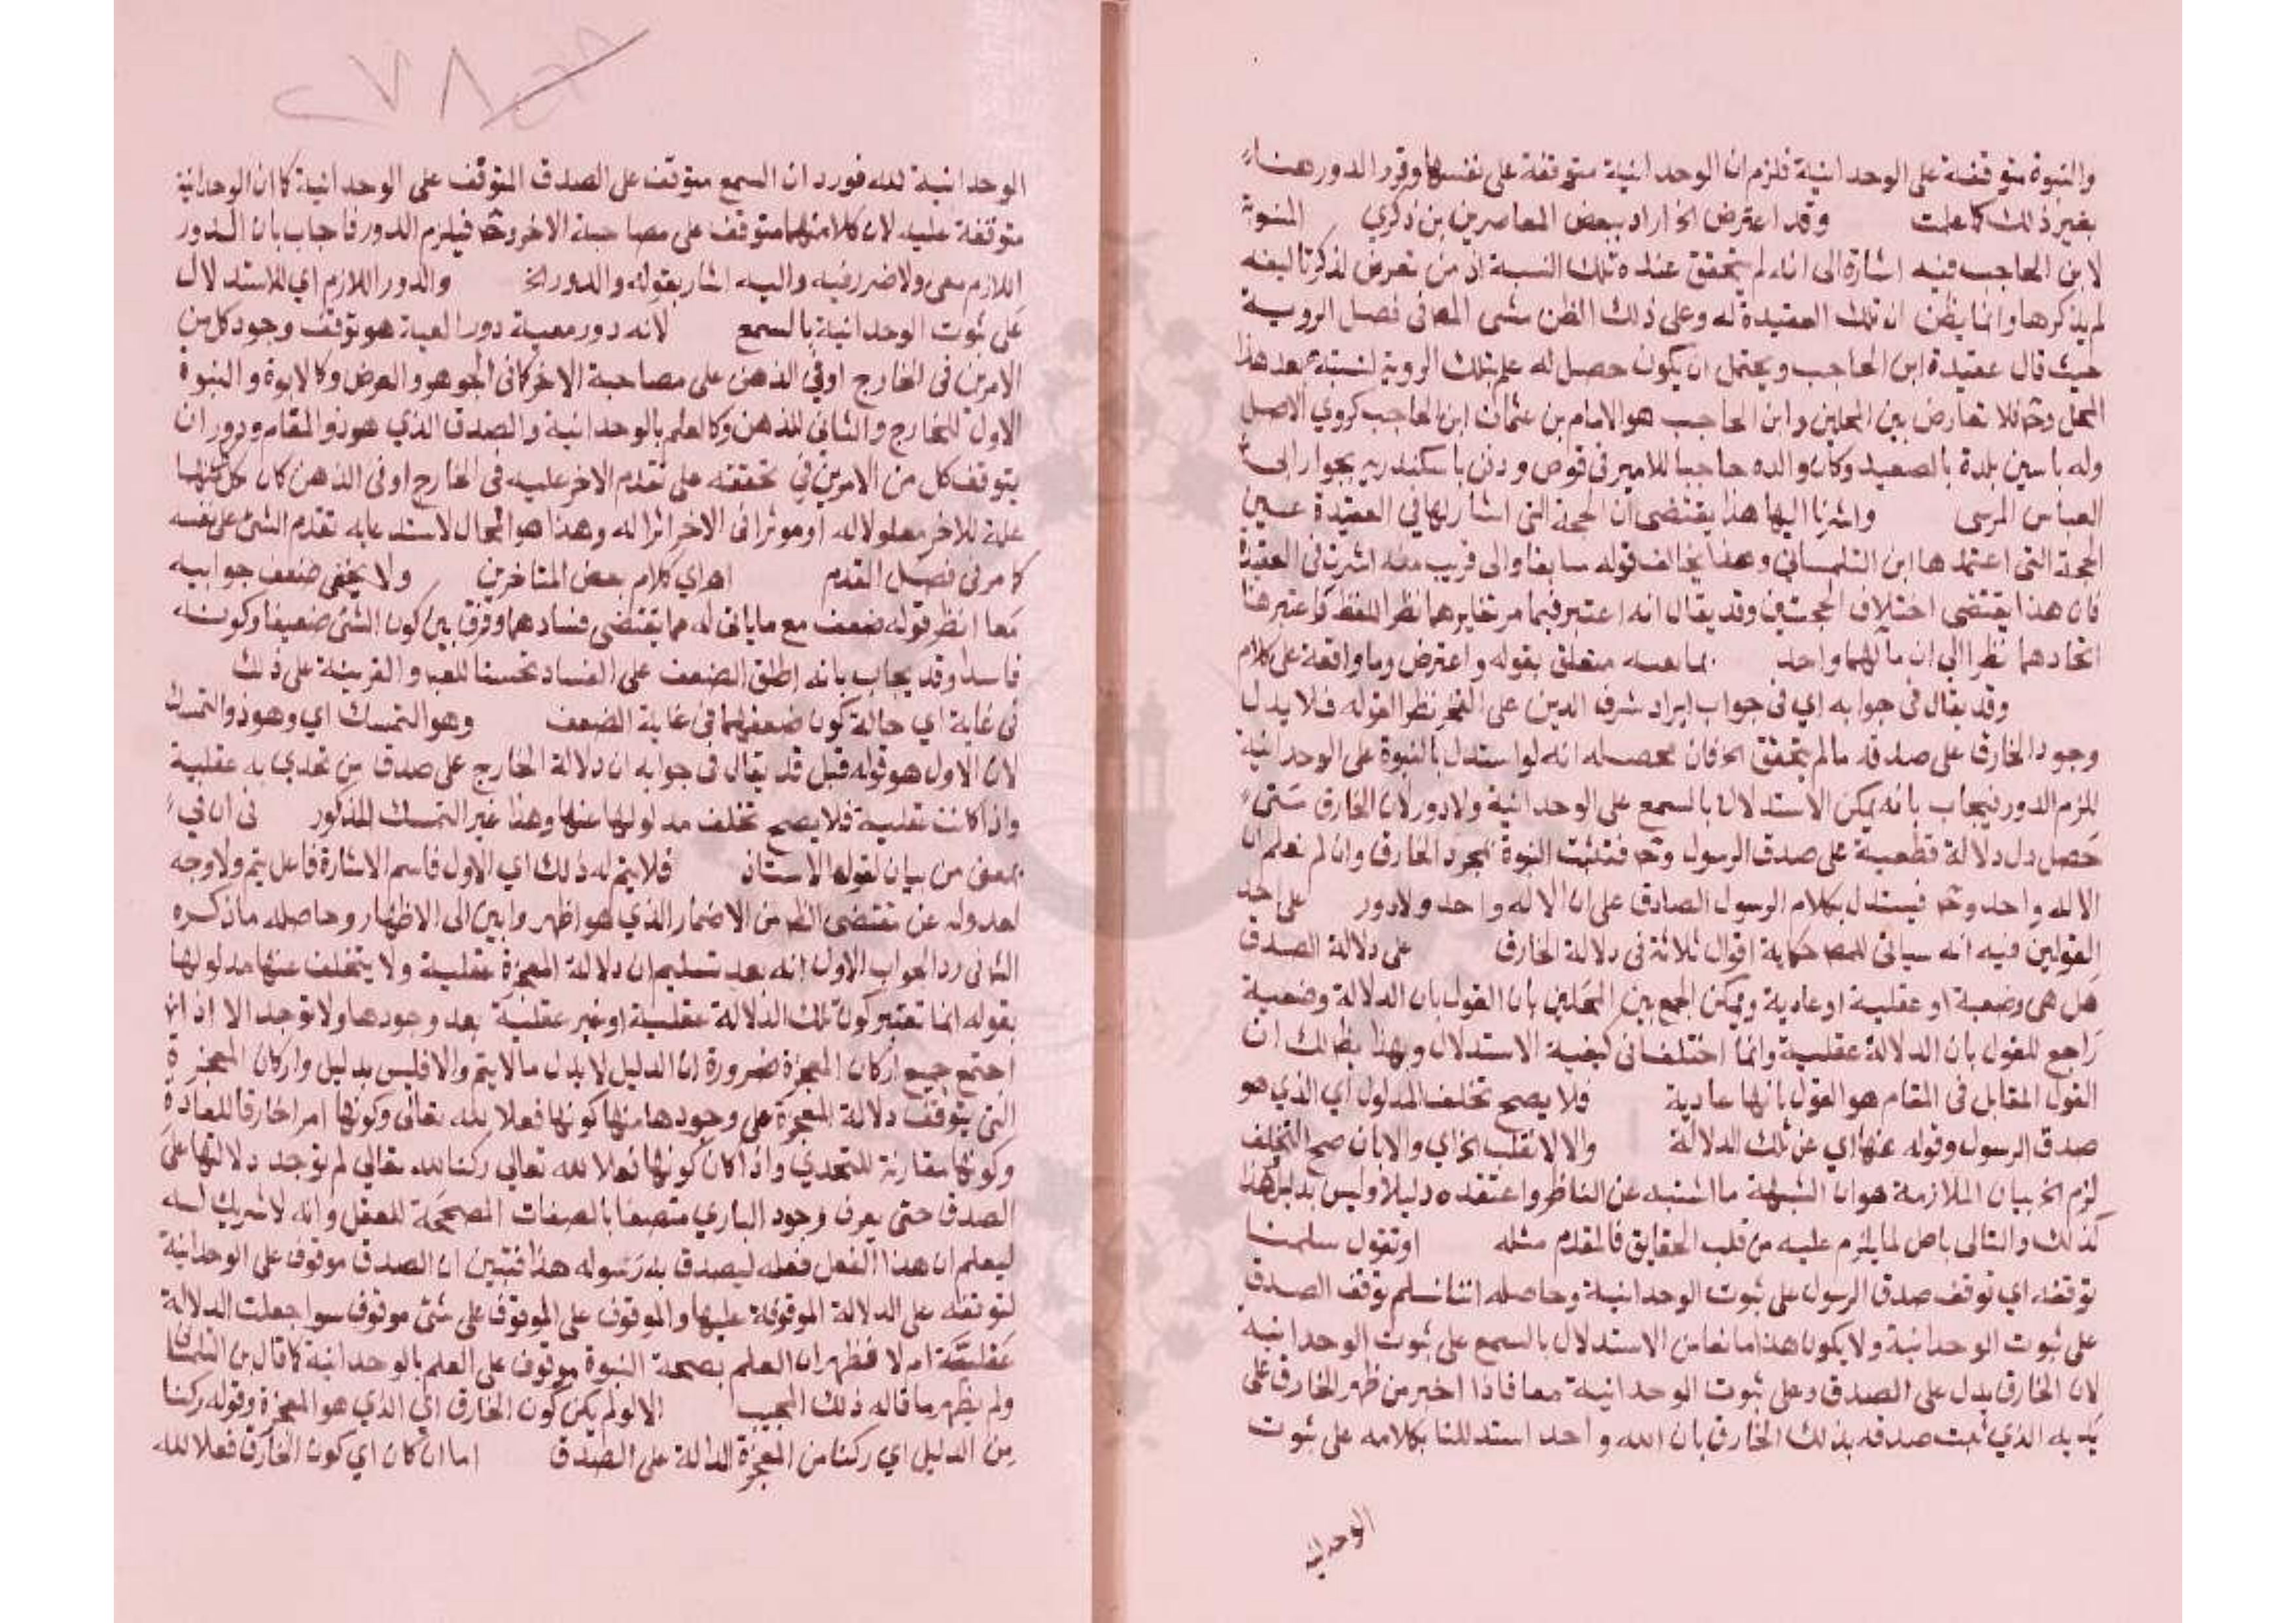 والنبوة متوقفة على الوحدانية فلزم ان الوحدانية متوقفة على نفسها وقرر الدور هنا
بغير ذلك كما علمت وقد اعترض الخ اراد ببعض المعاصرين بن زكري النسوبة
لابن الحاجب فيه اشارة الى انه لم يتحقق عنده تلك النسبة اذ من تعرض لذكر تاليفه
لم يذكرها وانما يظن ان تلك العقيدة له وعلى ذلك الظن مشى المص في فصل الروية
حيث قال عقيدة ابن الحاجب ويحتمل ان يكون حصل له علم بتلك الروية لنسبته بعد هذا
المحل وح فلا تعارض بين المحلين وابن الحاجب هو الامام بن عثمان ابن الحاجب كروي الاصل
وله باسين بلدة بالصعيد وكان والده حاجبا للامير في قوص ودفن باسكندريه بجوار ابي
العباس المرسى واشرنا اليها هذا يقتضى ان الحجة التي اشار بها في العقيدة عين
الحجة التي اعتمدها ابن التلمساني وهذا يخالف قوله سابقا والى قريب منه اشرت في العقيدة
فان هذا يقتضى اختلاف الحجتين وقد يقال انه اعتبر فيما مر تغايرهما نظر اللفظ واعتبر هنا
اتحادهما نظرا الي ان مآلهما واحد بما معه متعلق بقوله واعترض وما واقعة على كلام
وقد يقال في جوابه اي في جواب ايراد شرف الدين على الفخر نظر القوله فلا يدل
وجود الخارق على صدقه ما لم يتحقق الخ فان محصله انه لو استدل بالنبوة على الوحدانية
للزم الدور فيجاب بانه يمكن الاستدلال بالسمع على الوحدانية ولا دور لان الخارق متى
حصل دل دلالة قطعية على صدق الرسول وح فتثبت النبوة بمجرد الخارق وان لم نعلم ان
الاله واحد وح فيستدل بكلام الرسول الصادق على ان الاله واحد ولا دور على احد
القولين فيه انه سياتى للمص حكاية اقوال ثلاثة في دلالة الخارق على دلالة الصدق
هل هي وضعية او عقلية او عادية ويمكن الجمع بين المحلين بان القول بان الدلالة وضعية
راجع للقول بان الدلالة عقلية وانما اختلف في كيفية الاستدلال وبهذا يظهر لك ان
القول المقابل في المقام هو القول بانها عادية فلا يصح تخلف المدلول اي الذي هو
صدق الرسول وقوله عنها اي عن تلك الدلالة والا لانقلب الخ اي والا بان صح التخلف
لزم الخ بيان الملازمة هو ان الشبهة ما اشتبه عن الناظر واعتقده دليلا وليس بدليل هذا
كذلك والتالى باطل لما يلزم عليه من قلب الحقايق فالمقدم مثله او تقول سلمنا
توقفه اي توقف صدق الرسول على ثبوت الوحدانية وحاصله اننا نسلم توقف الصدق
على ثبوت الوحدانية ولا يكون هذا مانعا من الاستدلال بالسمع على ثبوت الوحدانيه
لان الخارق يدل على الصدق وعلى ثبوت الوحدانية معا فاذا اخبر من ظهر الخارق على
يديه الذي ثبت صدقه بذلك الخارق بان الله واحد استدللنا بكلامه على ثبوت
الوحدانية
الوحدانية لله فورد ان السمع متوقف على الصدق المتوقف على الوحدانية كما ان الوحدانية
متوقفة عليه لان كلا منهما متوقف على مصاحبة الاخر وح فيلزم الدور فاجاب بان الدور
اللازم معى ولا ضرر فيه واليه اشار بقوله والدور الخ والدور اللازم اي للاستدلال
على ثبوت الوحدانية بالسمع لانه دور معية دور المعية هو توقف وجود كل من
الامرين في الخارج او في الذهن على مصاحبة الاخر كما في الجوهر والعرض وكالابوة والنبوة
الاول للخارج والثاني للذهن وكالعلم بالوحدانية والصدق الذي هو ذو المقام ودور ان
يتوقف كل من الامرين في تحققه على تقدم الاخر عليه في الخارج او في الذهن كان كل منهما
علة للاخر معلولا له او موثرا في الاخر اثرا له وهذا هو المحال لاستدعايه تقدم الشئ على نفسه
كما مر في فصل القدم اهـ اي كلام بعض المتاخرين ولا يخفى ضعف جوابيه
معا انظر قوله ضعف مع ما ياتى له مما يقتضى فسادهما وفرق بين كون الشئ ضعيفا وكونه
فاسدا وقد يجاب بانه اطلق الضعف على الفساد تحسنا للعبا والقرينة على ذلك
في غاية اي حالة كون ضعفهما في غاية الضعف وهو التمسك اي وهو ذو التمسك
لان الاول هو قوله قبل قد يقال في جوابه ان دلالة الخارج على صدق من تحدي به عقلية
واذا كانت عقلية فلا يصح تخلف مدلولها عنها وهذا غير التمسك المذكور في ان في
بمعنى من بيان لقوله الاستاذ فلا يتم له ذلك اي الاول فاسم الاشارة فاعل يتم ولا وجه
لعدوله عن مقتضى الظ من الاضمار الذي هو اظهر وابين الى الاظهار وحاصله ما ذكره
الثانى رد الجواب الاول انه بعد تسليم ان دلالة المعجزة عقلية ولا يتخلف عنها مدلولها
بقوله انما تعتبر كون تلك الدلالة عقلية او غير عقلية بعد وجودها ولا توجد الا اذا
اجتمع جميع اركان المعجزة ضرورة ان الدليل لا يدل ما لا يتم والا فليس بدليل واركان المعجزة
التي يتوقف دلالة المعجزة على وجودها منها كونها فعلا لله تعالى وكونها امرا خارقا للعادة
وكونها مقارنة للتحدي واذا كان كونها فعلا لله تعالي ركنا لله تعالي لم توجد دلالتها على
الصدق حتى يعرف وجود الباري متصفا بالصفات المصححة للفعل وانه لا شريك له
ليعلم ان هذا الفعل فعله ليصدق به رسوله هذا فتبين ان الصدق موقوف على الوحدانية
لتوقفه على الدلالة الموقوفة عليها والموقوف على الموقوف على شئ موقوف سوا جعلت الدلالة
عقلية ام لا فظهر ان العلم بصحة النبوة موقوف على العلم بالوحدانية كما قال بن التلمسا
ولم يظهر ما قاله ذلك المجيب الا لو لم يكن كون الخارق اي الذي هو المعجزة وقوله ركنا
من الدليل اي ركنا من المعجزة الدالة على الصدق اما ان كان اي كون الخارق فعلا لله